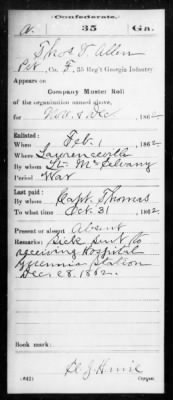 Confederate.
A. 35 Ga.
Thos V. Allen
Pvt, Co. F, 35 Reg't Georgia Infantry
Company Muster Roll
of the organization named above,
for Nov. & Dec., 1862
Enlisted:
When Feb. 1, 1862
Where Lawrenceville
By whom Lt. McElvany
Period War
Last paid:
By whom Capt. Thomas
To what time Oct. 31, 1862.
Present or absent Absent
Remarks: Sick sent to
receiving Hospital
Guinnia Station
Dec. 28. 1862.
Book mark:
(642)
Copyist.